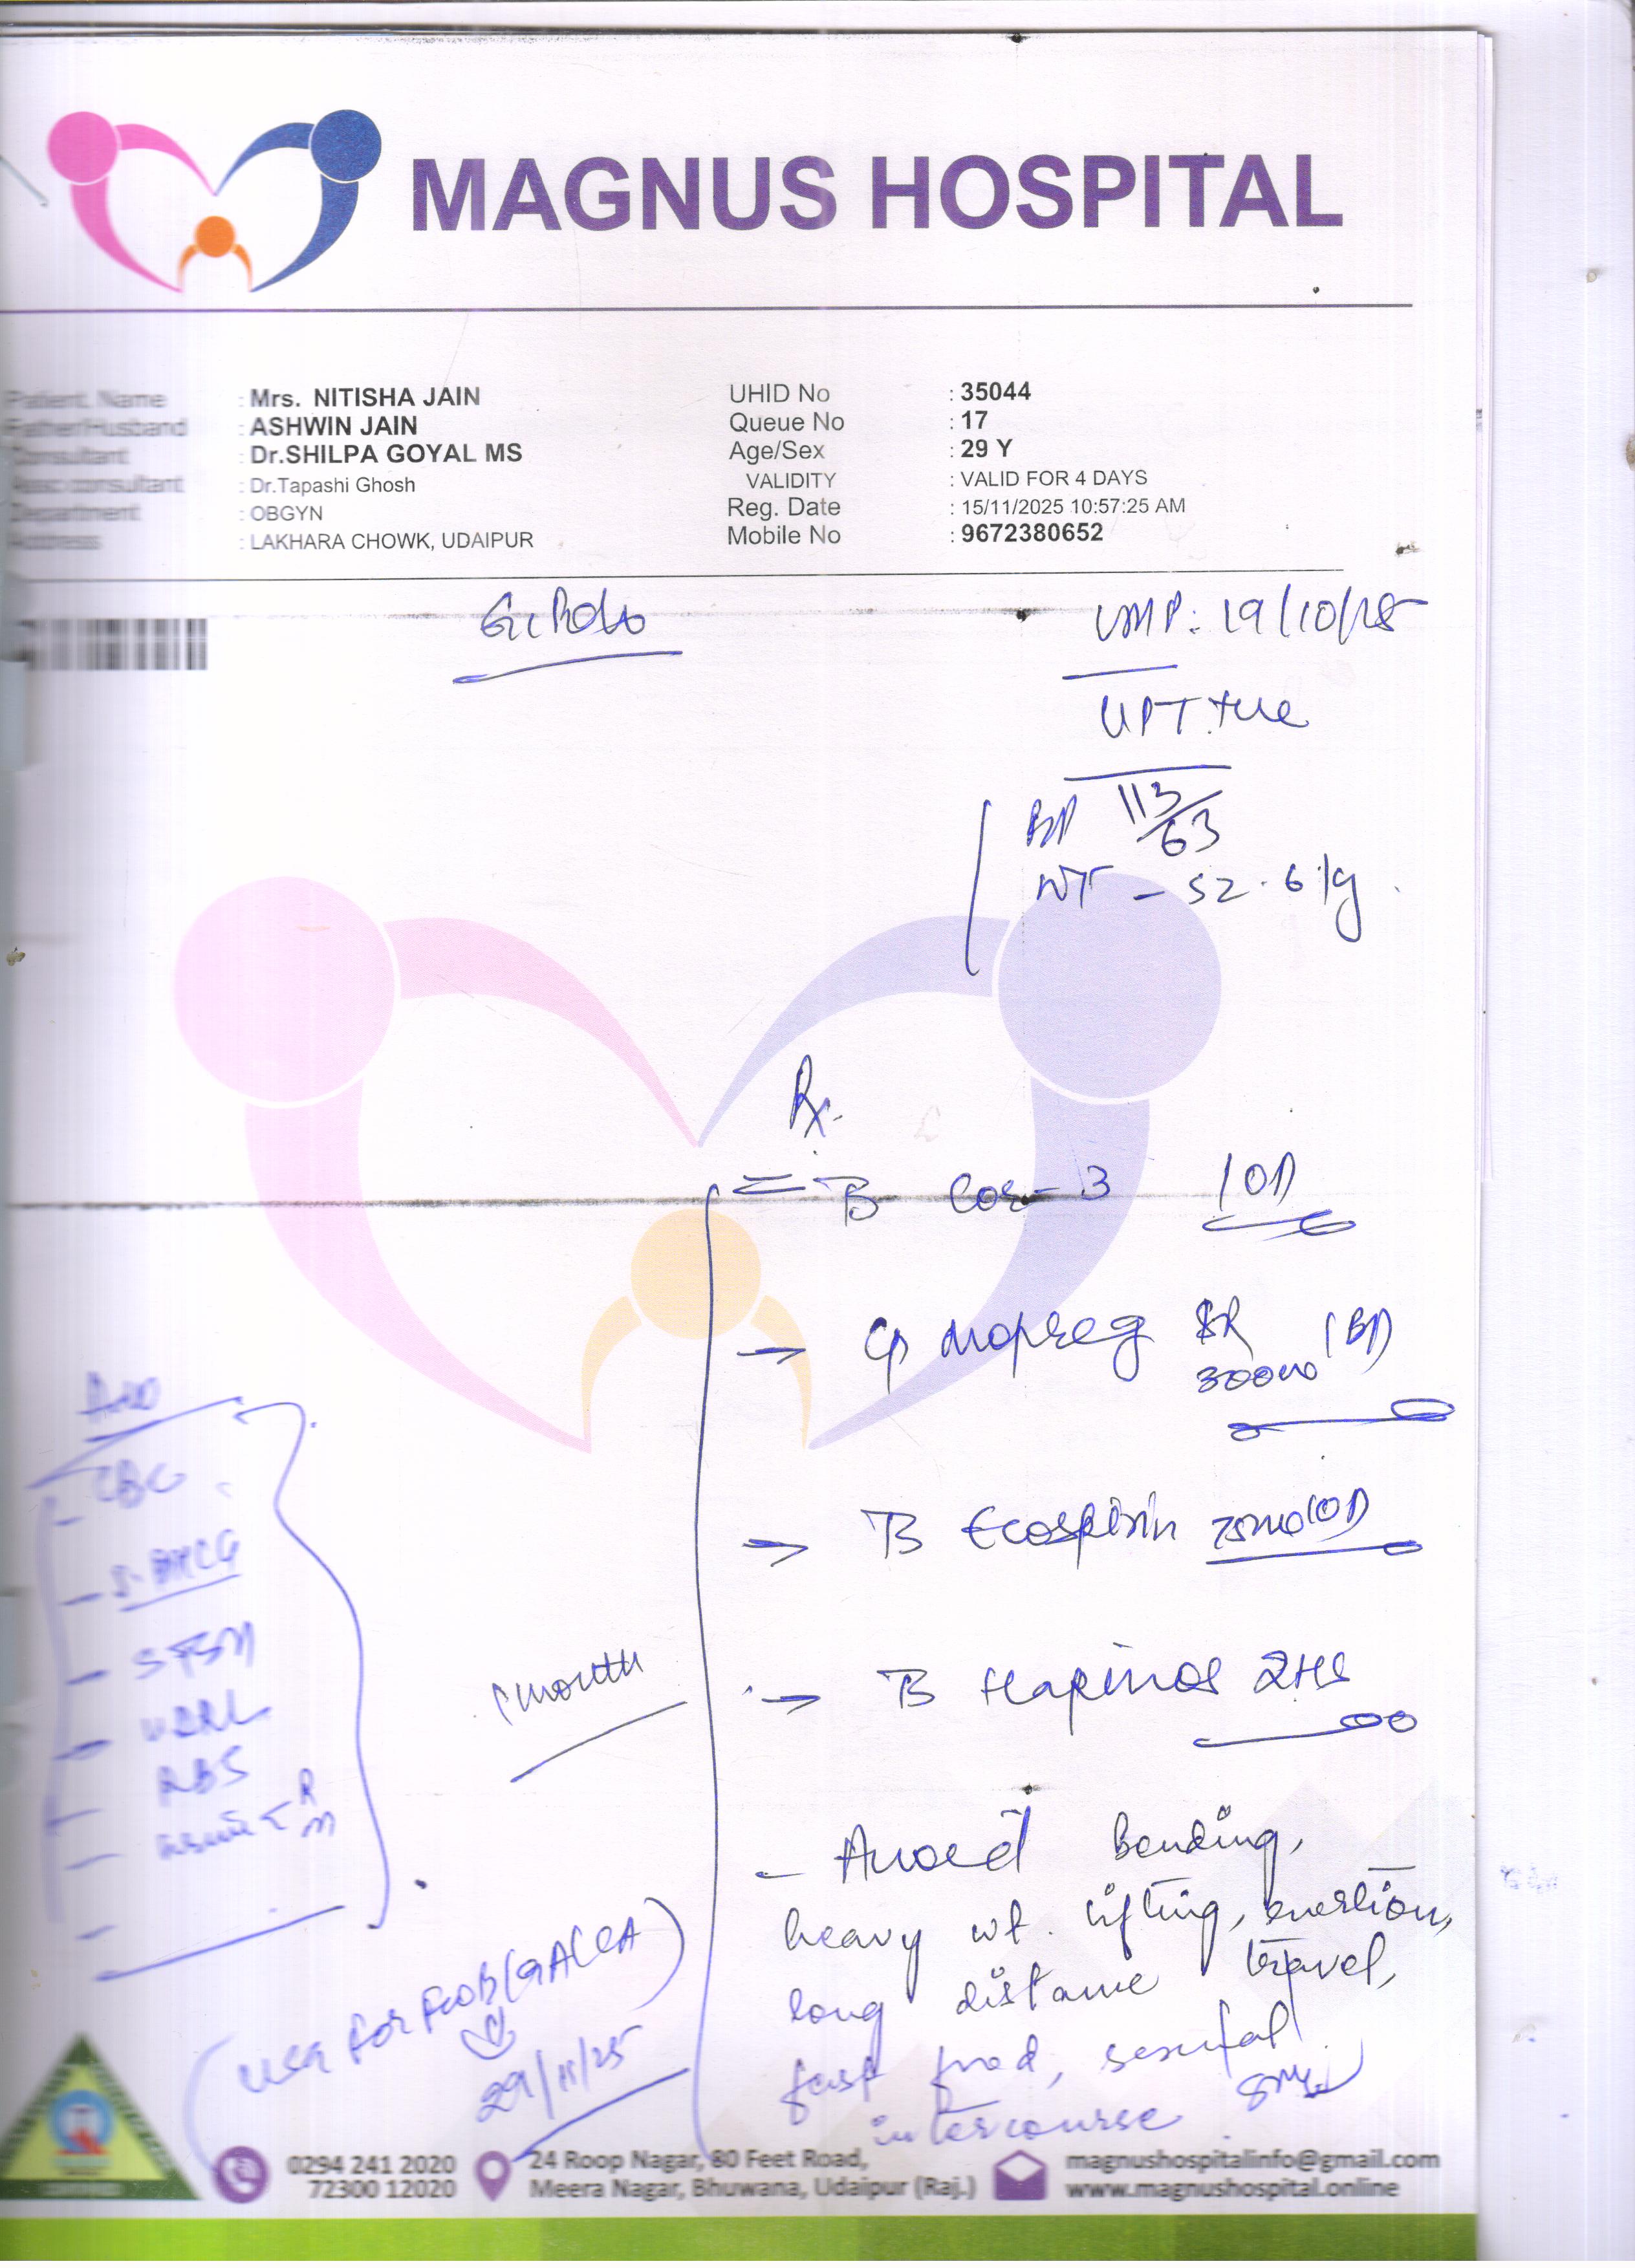 MAGNUS HOSPITAL
Patient. Name : Mrs. NITISHA JAIN
Father/Husband : ASHWIN JAIN
Consultant : Dr.SHILPA GOYAL MS
Asso consultant : Dr.Tapashi Ghosh
Department : OBGYN
Address : LAKHARA CHOWK, UDAIPUR
UHID No : 35044
Queue No : 17
Age/Sex : 29 Y
VALIDITY : VALID FOR 4 DAYS
Reg. Date : 15/11/2025 10:57:25 AM
Mobile No : 9672380652
LMP: 19/10/25
UPT +ve
BP 113/63
WT - 52.6 kg
Rx
Cos-3 1 OD
SR 300
Ecosprin 75mg 1OD
2HS
1 month
- Avoid Bending,
heavy wt. lifting, exertion,
long distance travel,
fast food, sexual
intercourse
CBC
- S-BHCG
RBS
R
M
USG for
29/11/25
0294 241 2020
72300 12020
24 Roop Nagar, 80 Feet Road,
Meera Nagar, Bhuwana, Udaipur (Raj.)
magnushospitalinfo@gmail.com
www.magnushospital.online